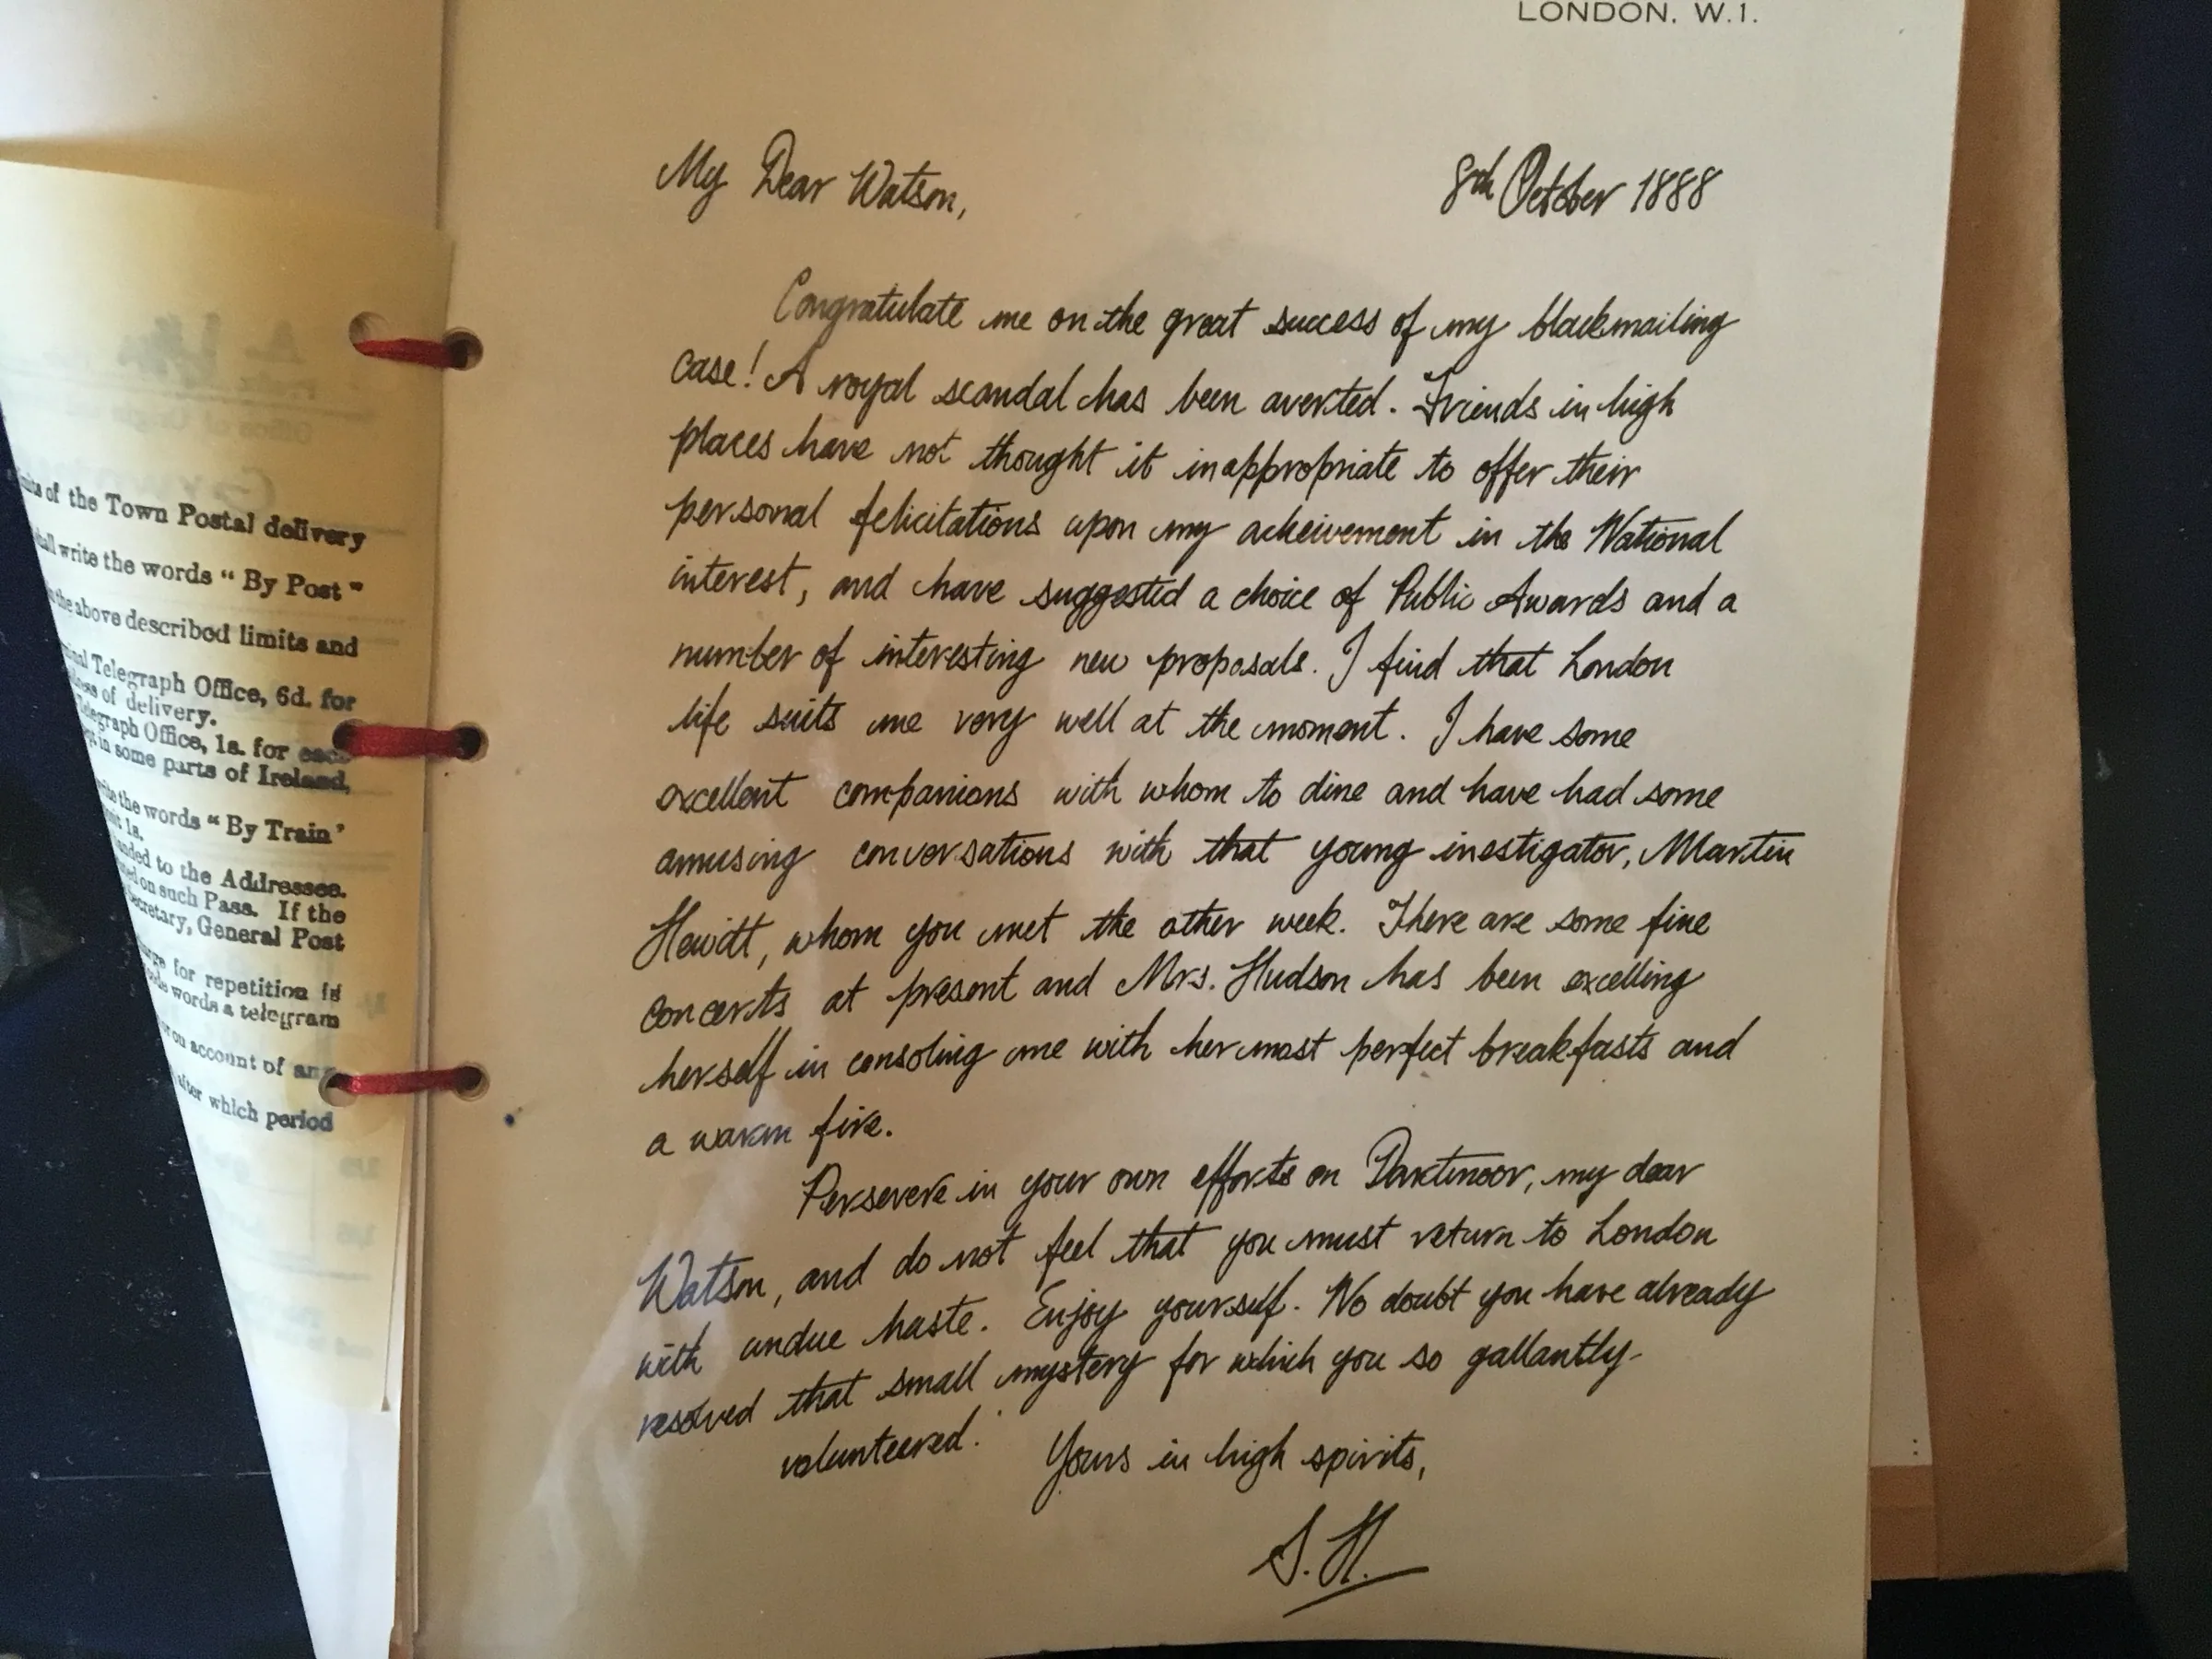 of the Town Postal delivery
write the words “ By Post ”
the above described limits and
Telegraph Office, 6d. for
of delivery.
Telegraph Office, 1s. for
in some parts of Ireland,
the words “ By Train ’
1s.
to the Addressee.
on such Pass. If the
Secretary, General Post
for repetition is
words a telegram
on account of any
after which period
LONDON, W.1.
My Dear Watson,
8th October 1888
Congratulate me on the great success of my blackmailing
case! A royal scandal has been averted. Friends in high
places have not thought it inappropriate to offer their
personal felicitations upon my acheivement in the National
interest, and have suggested a choice of Public Awards and a
number of interesting new proposals. I find that London
life suits me very well at the moment. I have some
excellent companions with whom to dine and have had some
amusing conversations with that young inestigator, Martin
Hewitt, whom you met the other week. There are some fine
concerts at present and Mrs. Hudson has been excelling
herself in consoling me with her most perfect breakfasts and
a warm fire.
Persevere in your own efforts on Dartmoor, my dear
Watson, and do not feel that you must return to London
with undue haste. Enjoy yourself. No doubt you have already
resolved that small mystery for which you so gallantly
volunteered.
Yours in high spirits,
S.H.